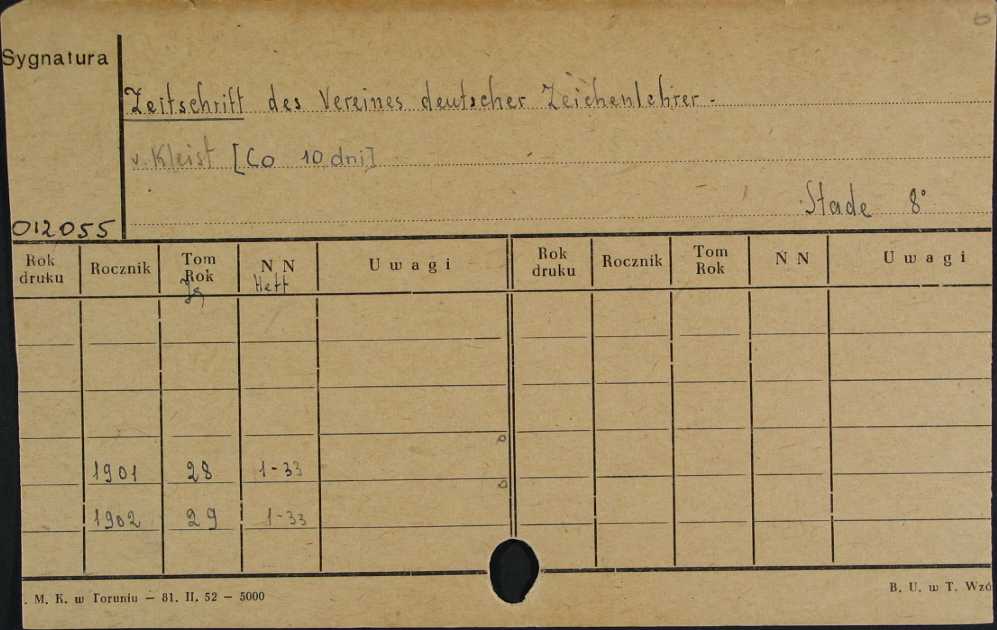 Sygnatura
Zeitschrift des Vereines deutscher Zeichenlehrer.
v. Kleist [Co 10 dni]
Stade 8°
012055
Rok druku Rocznik Tom Rok N N Uwagi Rok druku Rocznik Tom Rok N N Uwagi
Jg Heft
1901 28 1-33
1902 29 1-33
. M. K. w Toruniu — 81. II. 52 — 5000
B. U. w T. Wzó